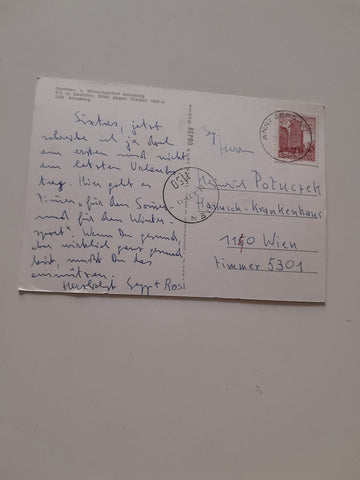 Sommer- u. Wintersportort Annaberg
973 m Seehöhe, Blick gegen Ötscher 1892 m
3222 Annaberg
Sixtus, jetzt
schreibe ich ja doch
am ersten und nicht
am letzten Urlaubs
tag. Hier geht es
immer "für den Sommer
und für den Winter-
sport". Wenn Du gesund,
aber wirklich ganz gesund
bist, mußt Du das
ausnützen.
Herzlichst Sepp + Rosi
PHOTO REPRO
ANNABERG
Herrn
Heinrich Potuczek
Hanusch-Krankenhaus
1140 Wien
Zimmer 5301
WIEN
1150